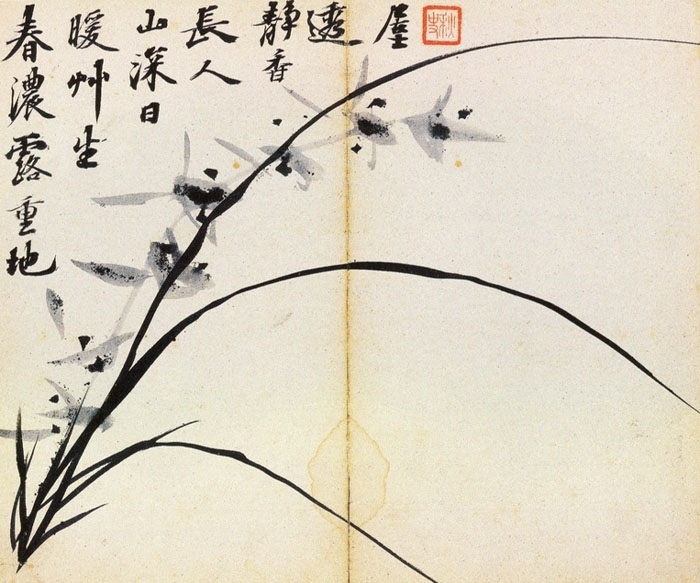 春濃露重地
暖艸生
山深日
長人
靜香
透
屋
秋史